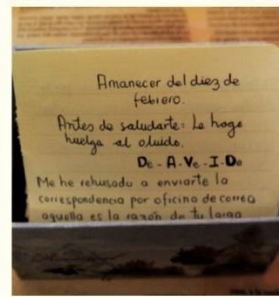 Amanecer del diez de
febrero.
Antes de saludarte: Le hago
huelga al olvido.
De - A - Ve - I - De
Me he rehusado a enviarte la
correspondencia por oficina de correo
aquella es la razón de tu larga